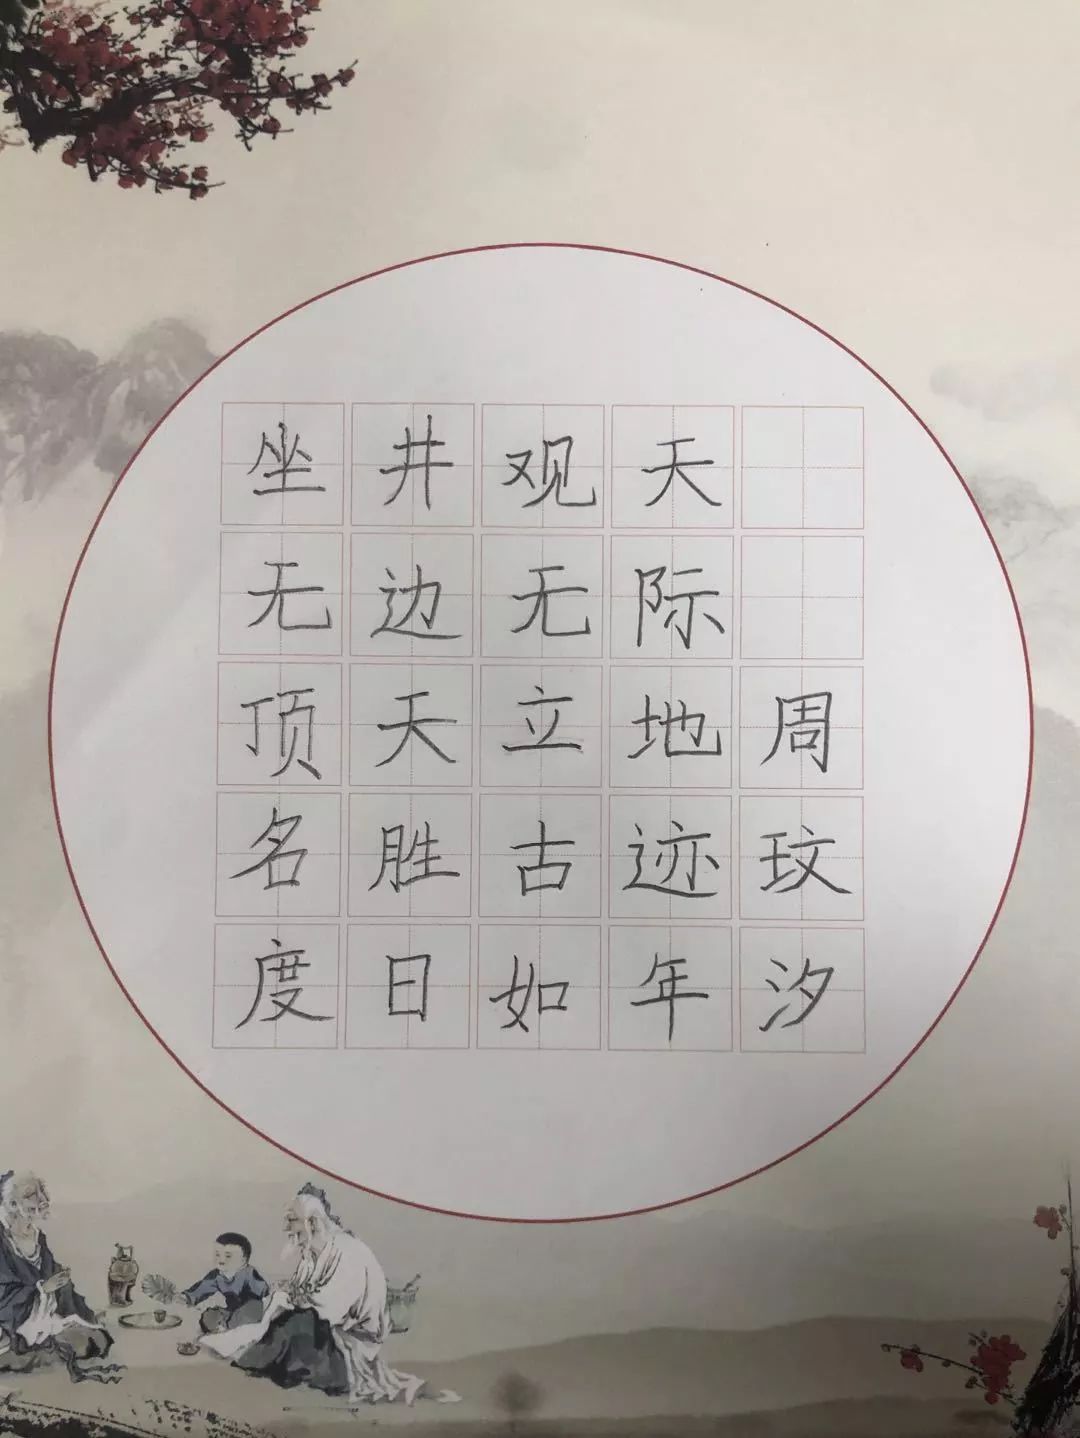 坐井观天
无边无际
顶天立地周
名胜古迹玟
度日如年汐